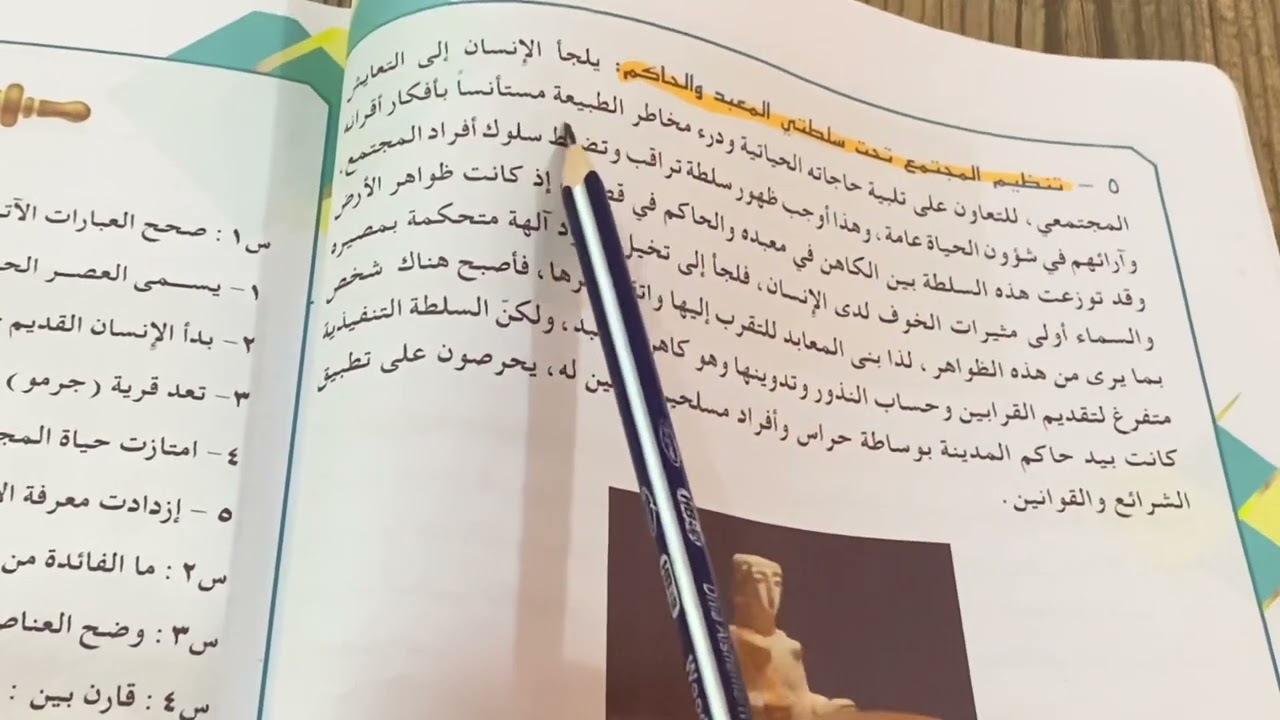 ٥ – تنظيم المجتمع تحت سلطتي المعبد والحاكم: يلجأ الإنسان إلى التعايش
المجتمعي، للتعاون على تلبية حاجاته الحياتية ودرء مخاطر الطبيعة مستأنساً بأفكار أقرانه
وآرائهم في شؤون الحياة عامة، وهذا أوجب ظهور سلطة تراقب وتضبط سلوك أفراد المجتمع.
وقد توزعت هذه السلطة بين الكاهن في معبده والحاكم في إذ كانت ظواهر الأرض
والسماء أولى مثيرات الخوف لدى الإنسان، فلجأ إلى تخيل آلهة متحكمة بمصيره
بما يرى من هذه الظواهر، لذا بنى المعابد للتقرب إليها فأصبح هناك شخص
متفرغ لتقديم القرابين وحساب النذور وتدوينها وهو ولكنّ السلطة التنفيذية
كانت بيد حاكم المدينة بوساطة حراس وأفراد له، يحرصون على تطبيق
الشرائع والقوانين.
س١ : صحح العبارات
١- يسمى العصر
٢- بدأ الإنسان القديم
٣- تعد قرية (جرمو)
٤- امتازت حياة
٥ - إزدادت معرفة
س٢ : ما الفائدة من
س٣ : وضح
س٤ : قارن بين :